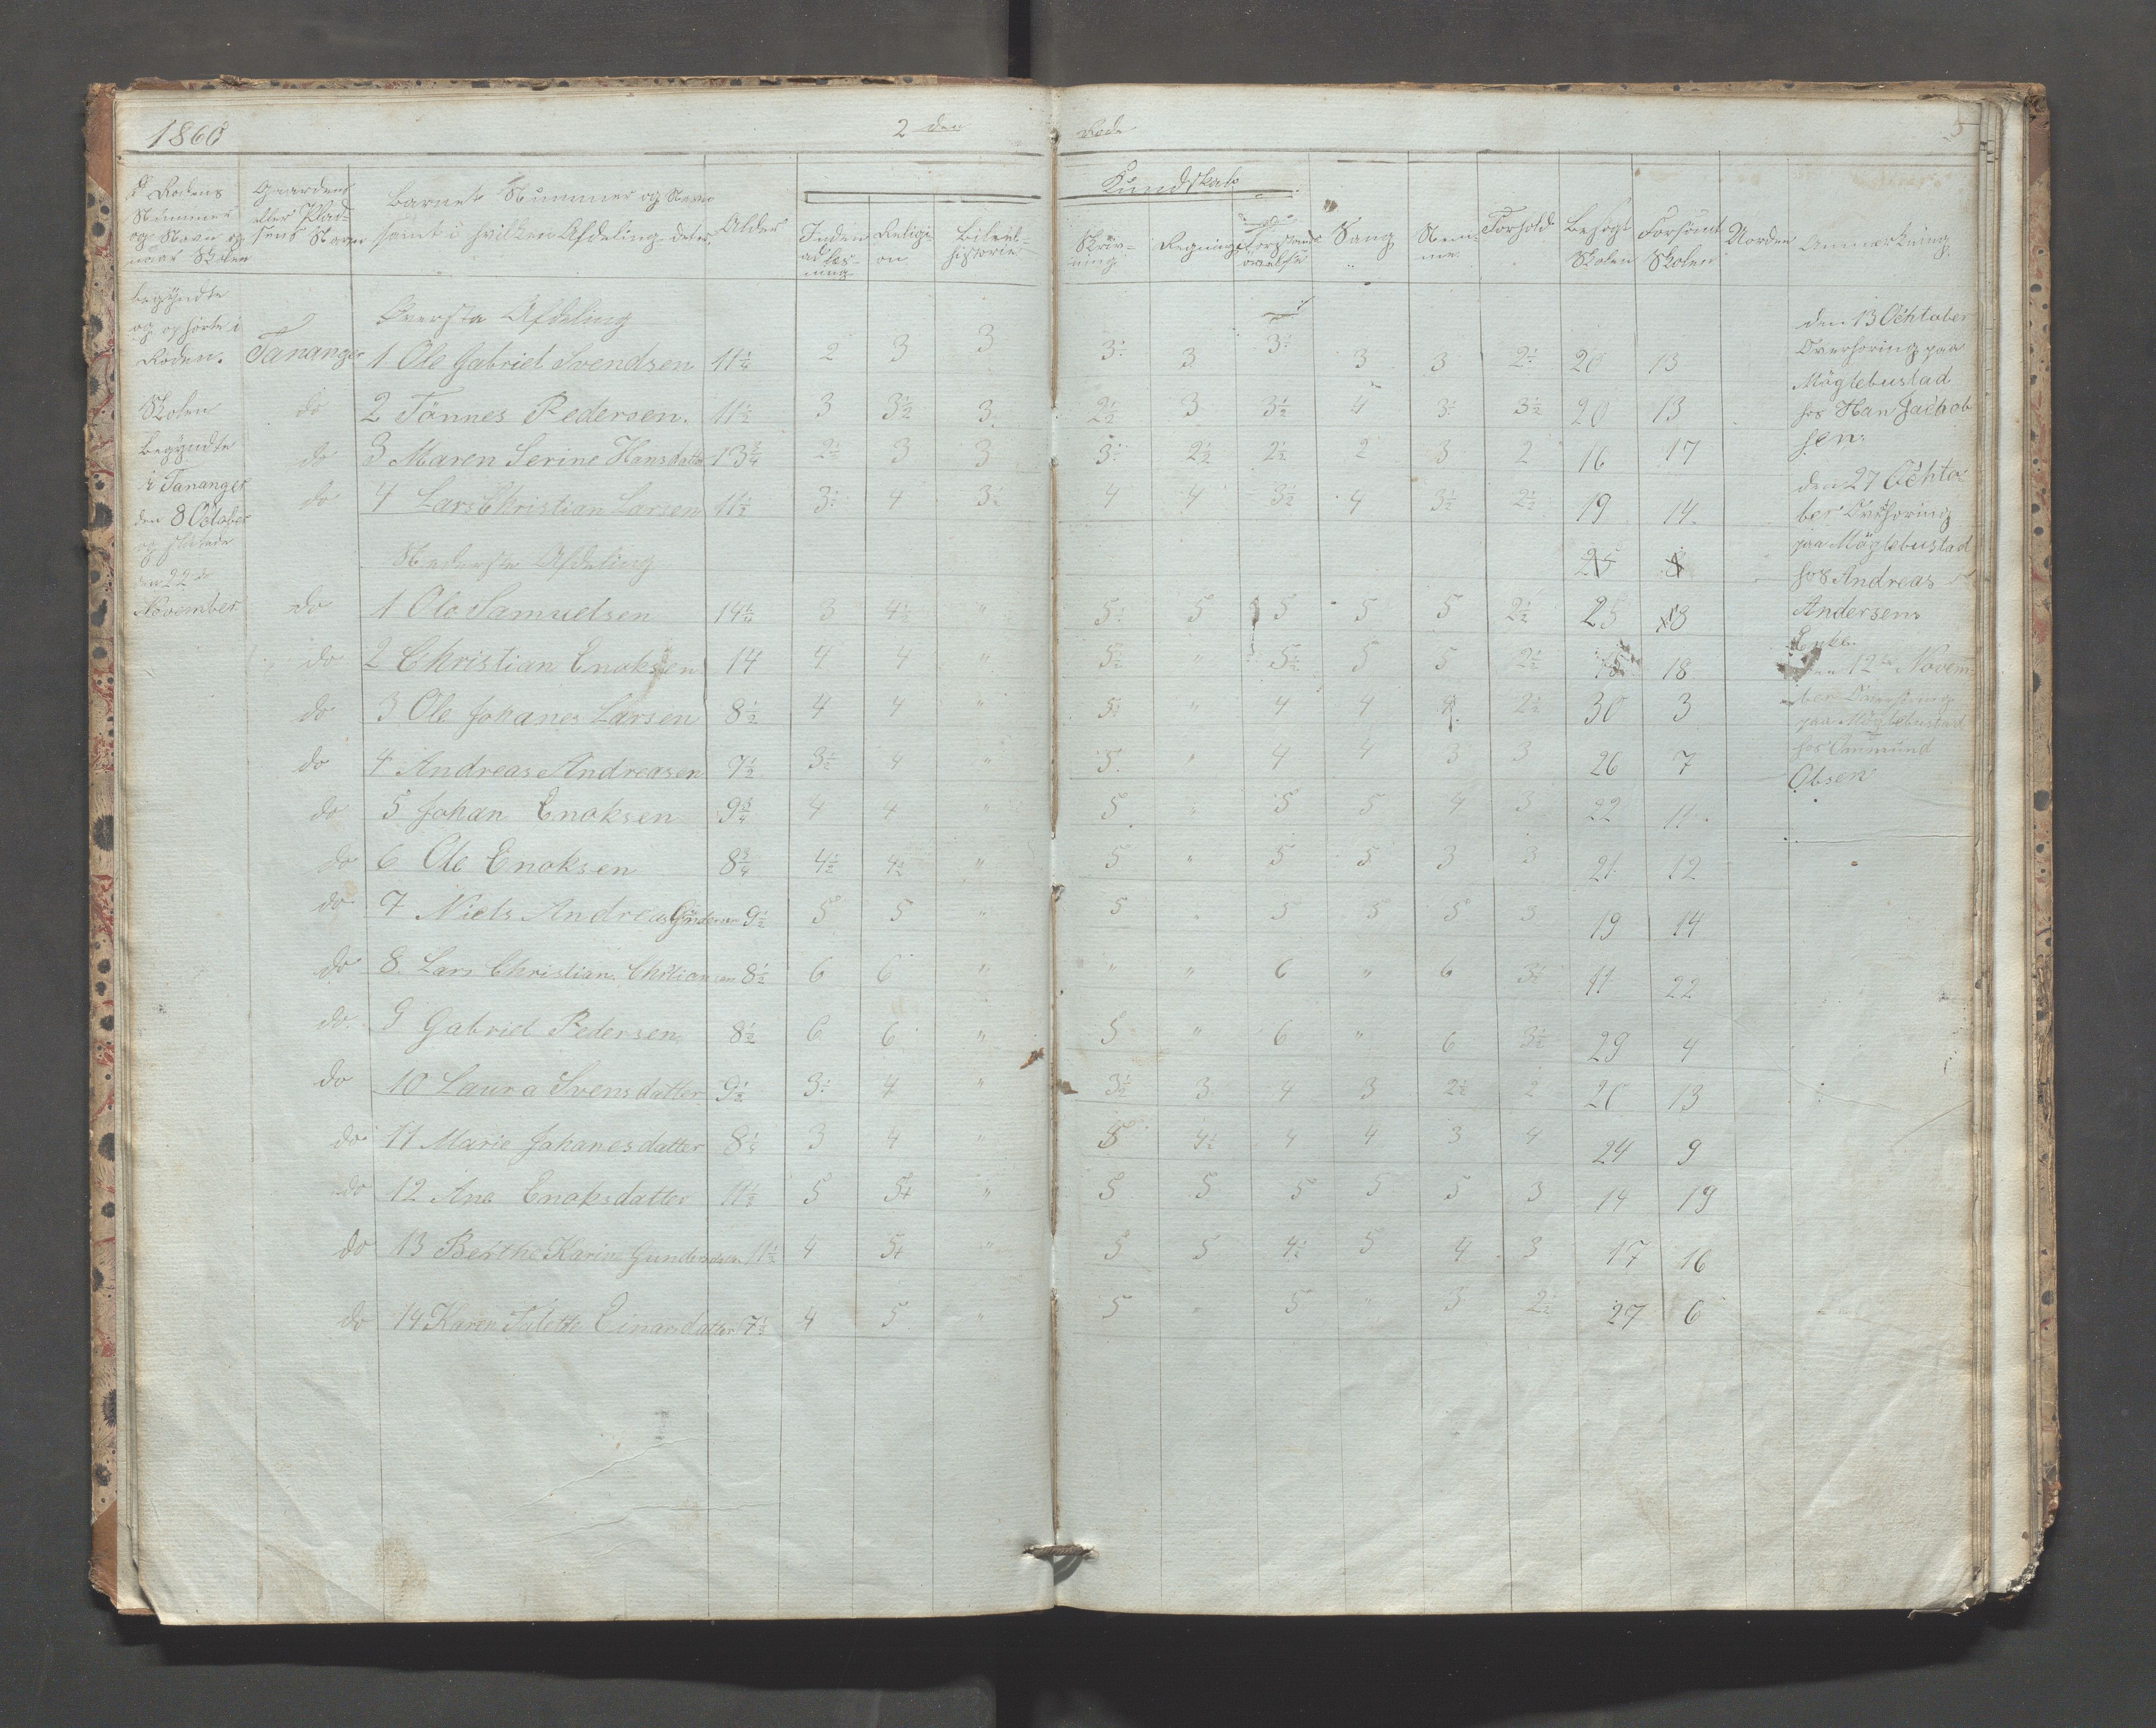 1860 2 den Rode 5
Kundskab
Rodens Nummer og Navn og naar Skolen begyndte og ophørte i Roden.
Gaardens eller Pladsens Navn
Barnets Nummer og Navn samt i hvilken Afdeling det er,
Alder
Indenadlæsning
Religion
Bibelhistorie
Skrivning
Regning
Forstandsøvelse
Sang
Nemme
Forhold
Besøgt Skolen
Forsømt Skolen
Uorden
Anmærkning
Øverste Afdeling
Tananger 1 Ole Gabriel Svendsen 11 1/4 2 3 3 3 3 3 3 3 2 20 13
do 2 Tönnes Pedersen. 11 1/2 3 3 1/2 3 2 1/2 3 3 1/2 4 3 3 1/2 20 13
do 3 Maren Serine Hansdatter 13 3/4 2 1/2 3 3 3 2 1/2 2 1/2 2 3 2 16 17
do 4 Lars Christian Larsen 11 1/2 3 4 3 4 4 3 1/2 4 3 1/2 2 1/2 19 14
Nederste Afdeling
do 1 Ole Samuelsen 14 3 4 1/2 " 5 5 5 5 5 2 1/2 25 8
do 2 Christian Enoksen 14 4 4 " 5 1/2 " 5 1/2 5 5 2 1/2 15 18
do 3 Ole Johanes Larsen 8 1/2 4 4 " 5 " 4 4 4 2 1/2 30 3
do 4 Andreas Andreasen 7 1/2 3 1/2 4 " 5 " 4 4 3 3 26 7
do 5 Johan Enoksen 9 3/4 4 4 " 5 " 5 5 4 3 22 11
do 6 Ole Enoksen 8 3/4 4 1/2 4 1/2 " 5 " 5 5 3 3 21 12
do 7 Niels Andreas Gundersen 9 1/2 5 5 " 5 " 5 5 5 3 19 14
do 8. Lars Christian Christiansen 8 1/2 6 6 " " " 6 " 6 3 1/2 11 22
do 9 Gabriel Pedersen 8 1/2 6 6 " 5 " 6 " 6 3 1/2 29 4
do 10 Laura Svensdatter 9 1/2 3 4 " 3 1/2 3 4 3 2 1/2 2 20 13
do 11 Marie Johanesdatter 8 1/4 3 4 " 5 4 1/2 4 4 3 4 24 9
do 12 Ane Enoksdatter 11 1/2 5 5+ " 5 5 5 5 5 3 14 19
do 13 Berthe Karine Gundersdatter 11 1/2 4 5+ " 5 5 4 1/2 5 4 3 17 16
do 14 Karen Talette Einarsdatter 7 1/2 4 5 " 5 " 5 " 3 2 1/2 27 6
Skolen
begyndte
i Tananger
den 8 October
og sluttede
den 22de
November
den 13 Ochtober
Overhøring paa
Møglebustad
hos Han Jachob
sen.
den 27 Ochto
ber Overhøring
paa Møglebustad
hos Andreas
Andersens
Enke.
den 12te Novem
ber Overhøring
paa Møglebustad
hos Ommund
Olsen